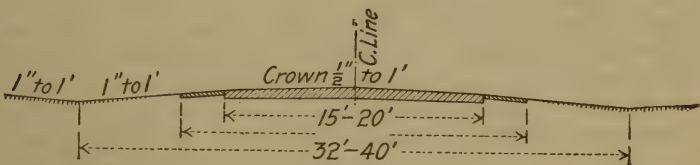 C.Line
1" to 1' 1" to 1' Crown ½" to 1'
15'-20'
32'-40'